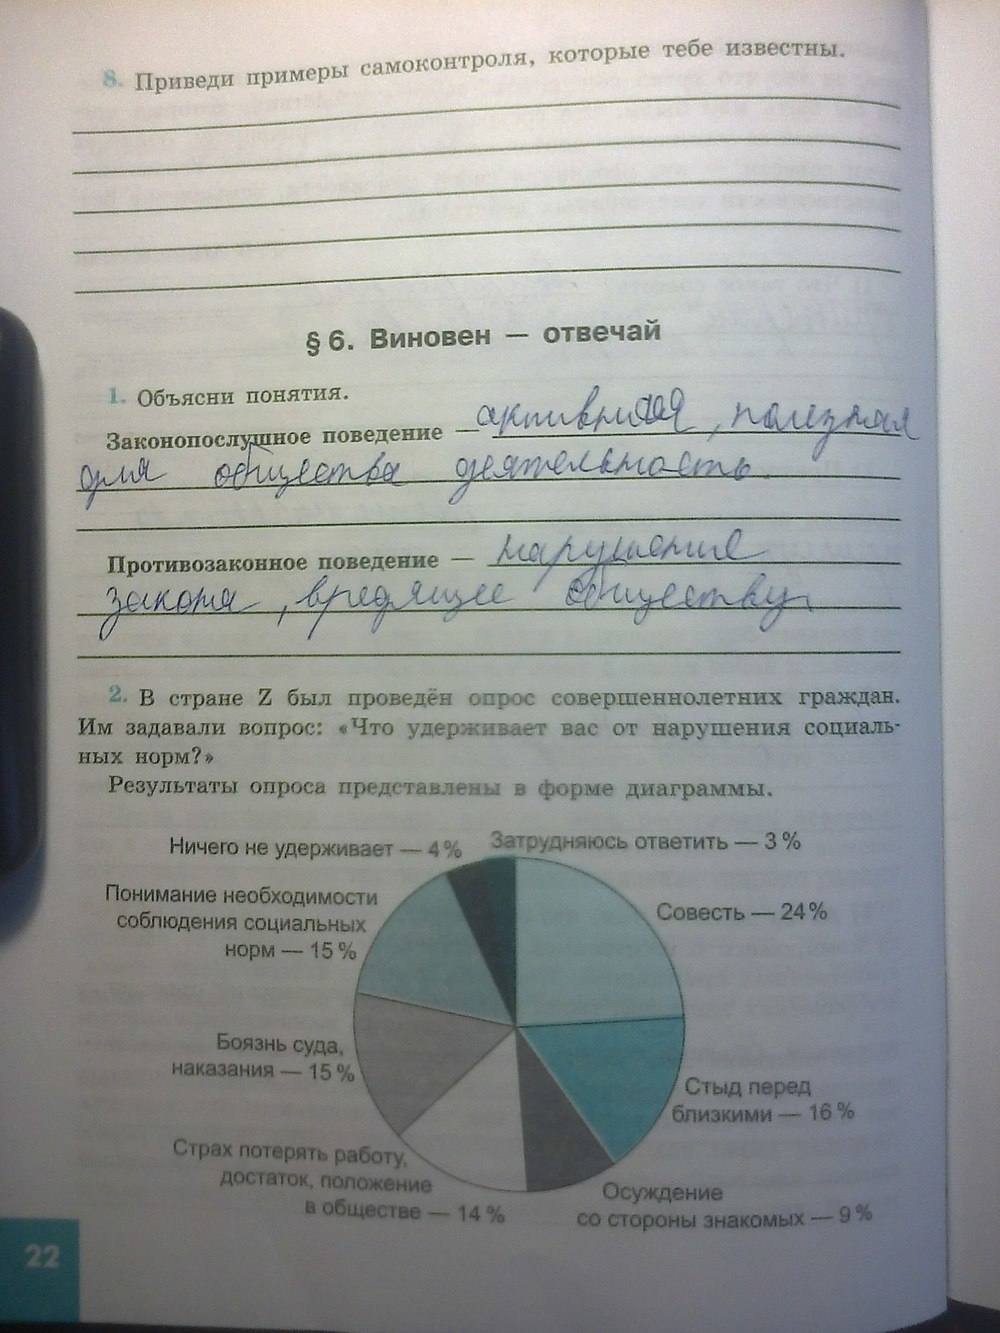 8. Приведи примеры самоконтроля, которые тебе известны.
§ 6. Виновен — отвечай
1. Объясни понятия.
Законопослушное поведение — активная, полезная
для общества деятельность.
Противозаконное поведение — нарушение
закона, вредящее обществу.
2. В стране Z был проведён опрос совершеннолетних граждан.
Им задавали вопрос: «Что удерживает вас от нарушения социаль-
ных норм?»
Результаты опроса представлены в форме диаграммы.
Ничего не удерживает — 4 %
Затрудняюсь ответить — 3 %
Понимание необходимости
соблюдения социальных
норм — 15 %
Совесть — 24 %
Боязнь суда,
наказания — 15 %
Стыд перед
близкими — 16 %
Страх потерять работу,
достаток, положение
в обществе — 14 %
Осуждение
со стороны знакомых — 9 %
22